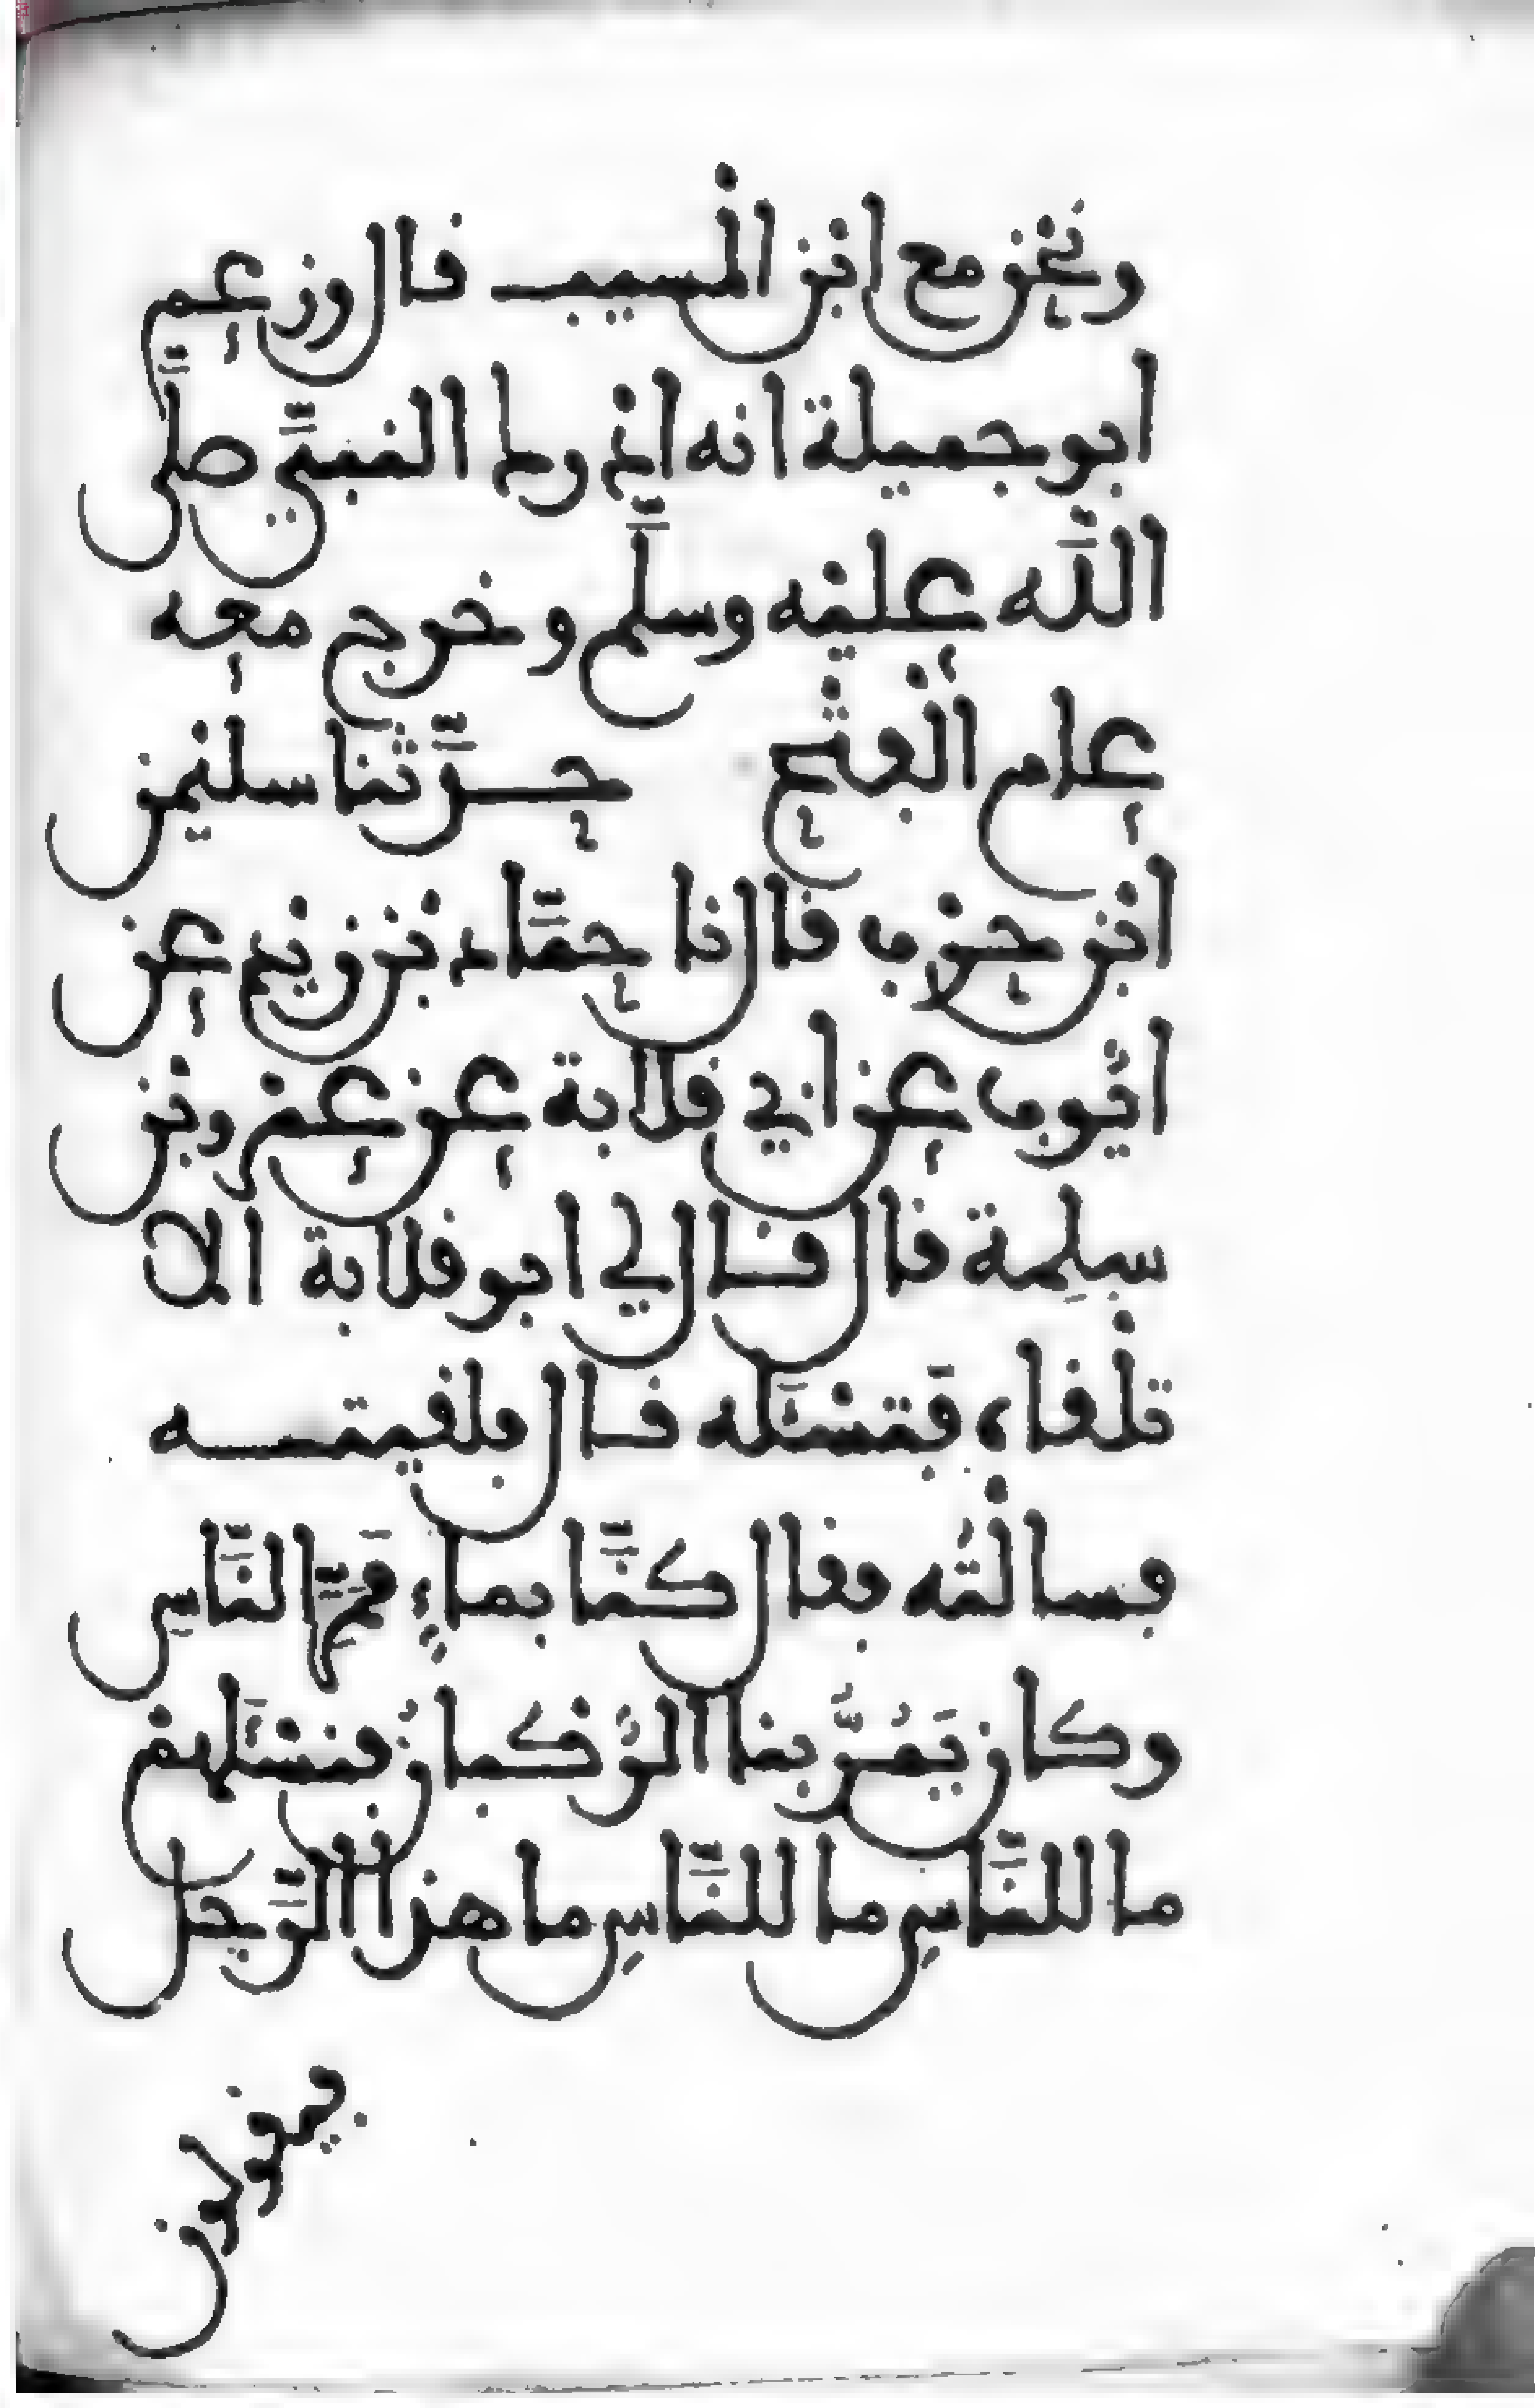 ونحن مع ابن المسيب قال وزعم
ابو جميلة انه ادرك النبيّ صلّى
اللّه عليه وسلّم وخرج معه
عام الفتح حدّثنا سليمن
ابن حرب قال نا حمّاد بن زيد عن
ايّوب عن ابي قلابة عن عمرو بن
سلِمة قال قال لي ابو قلابة الا
تلقاه فَتسْئَله قال فلقيته
فسالْتُه فقال كنّا بماءٍ مَمَرِّ النّاسِ
وكان يَمُرُّ بنا الرُّكبانُ فنسْئَلهم
ما للنّاسِ ما للنّاسِ ما هذا الرّجل
فيقولون